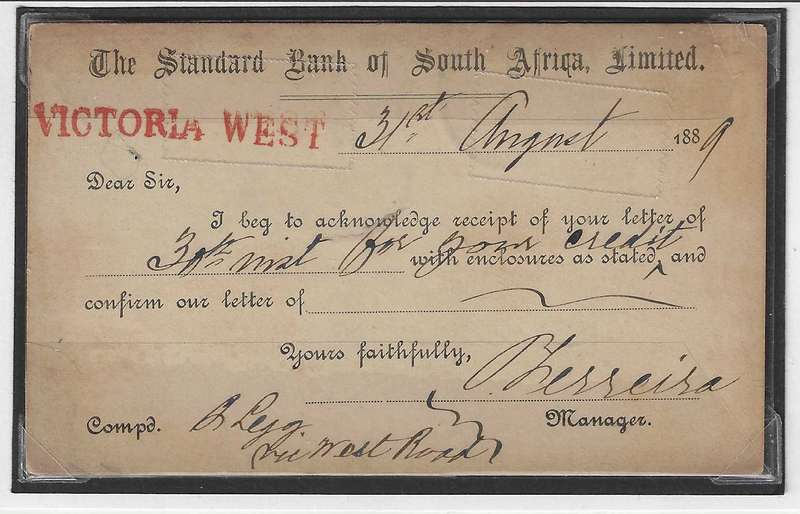 The Standard Bank of South Africa, Limited.
VICTORIA WEST 31st August 1889
Dear Sir,
I beg to acknowledge receipt of your letter of
30th inst for your credit
with enclosures as stated, and
confirm our letter of
Yours faithfully,
Ferreira
Manager.
Compd.
Vic West Road